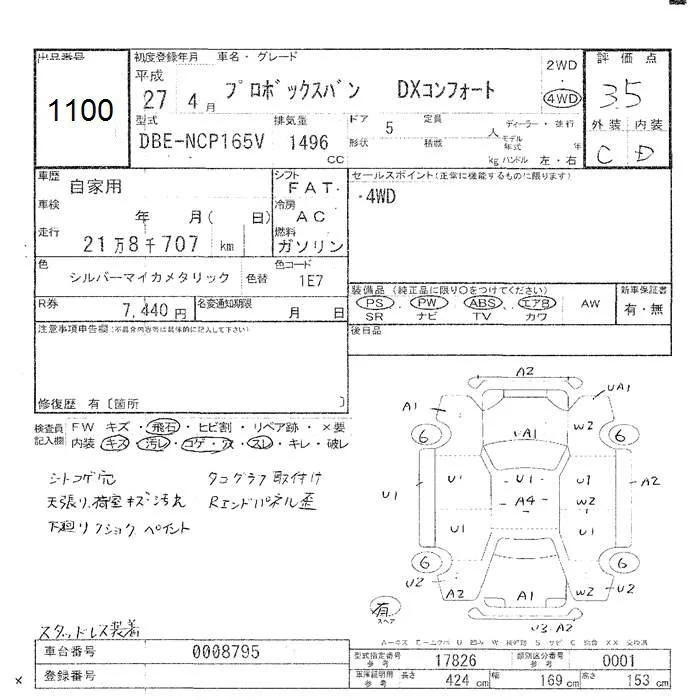 出品番号
1100
初度登録年月 車名・グレード
平成
27 4月 プロボックスバン DXコンフォート
2WD
・
4WD
評価点
3.5
外装 内装
C D
型式 排気量 ドア 定員 ディーラー・並行
DBE-NCP165V 1496 cc 5 人
形状 積載 kg モデル年式 年
ハンドル 左・右
車歴 自家用
シフト FAT
車検 年 月( 日)
冷房 AC
走行 21万8千707 km
燃料 ガソリン
色 シルバーマイカメタリック 色替
色コード 1E7
R券 7,440円
名変通知期限 月 日
セールスポイント(正常に機能するものに限ります)
・4WD
装備品 (純正品に限り○をつけてください)
PS・PW・ABS・エアB AW
SR ナビ TV カワ
新車保証書
有・無
後日品
注意事項申告欄(不具合内容等は具体的に記入して下さい)
修復歴 有〔箇所 〕
検査員記入欄
FW キズ・飛石・ヒビ割・リペア跡・×要
内装 キズ・汚レ・コゲ・穴・スレ・キレ・破レ
シートコゲ穴 タコグラフ取付け
天張り、荷室キズ・汚れ Rエンドパネル歪
下廻りフショク ペイント
スタッドレス装着
A2
A1 UA1
6 A1 W2 6
U1 U1 U1 U1 A2
A4 W2
U1 U1
6 6
U2 A2 A1 W2 U2
有
スペア
U3・A2
車台番号 0008795
登録番号
型式指定番号 参考 17826
類別区分番号 参考 0001
車庫証明用 参考 長さ 424 cm 幅 169 cm 高さ 153 cm
×